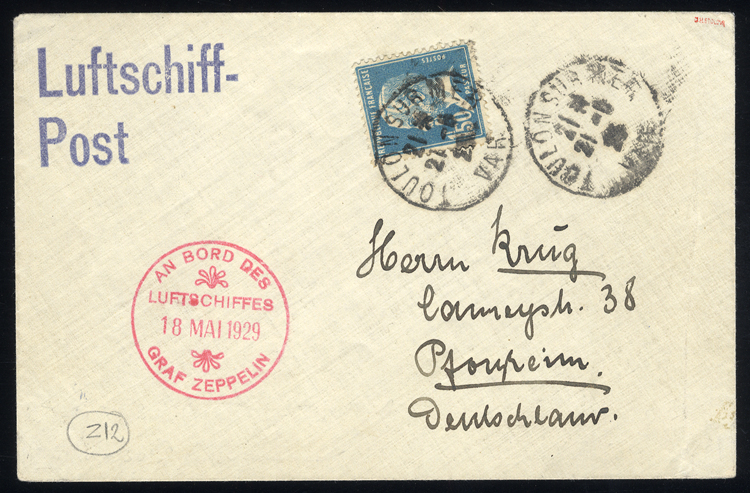 Luftschiff-
Post
REPUBLIQUE FRANÇAISE
POSTES
1F50
PASTEUR
TOULON SUR MER
21
21
VAR
TOULON SUR MER
21
21
VAR
AN BORD DES
LUFTSCHIFFES
18 MAI 1929
GRAF ZEPPELIN
Herrn Krug
Lameystr. 38
Pforzheim.
Deutschland.
Z12